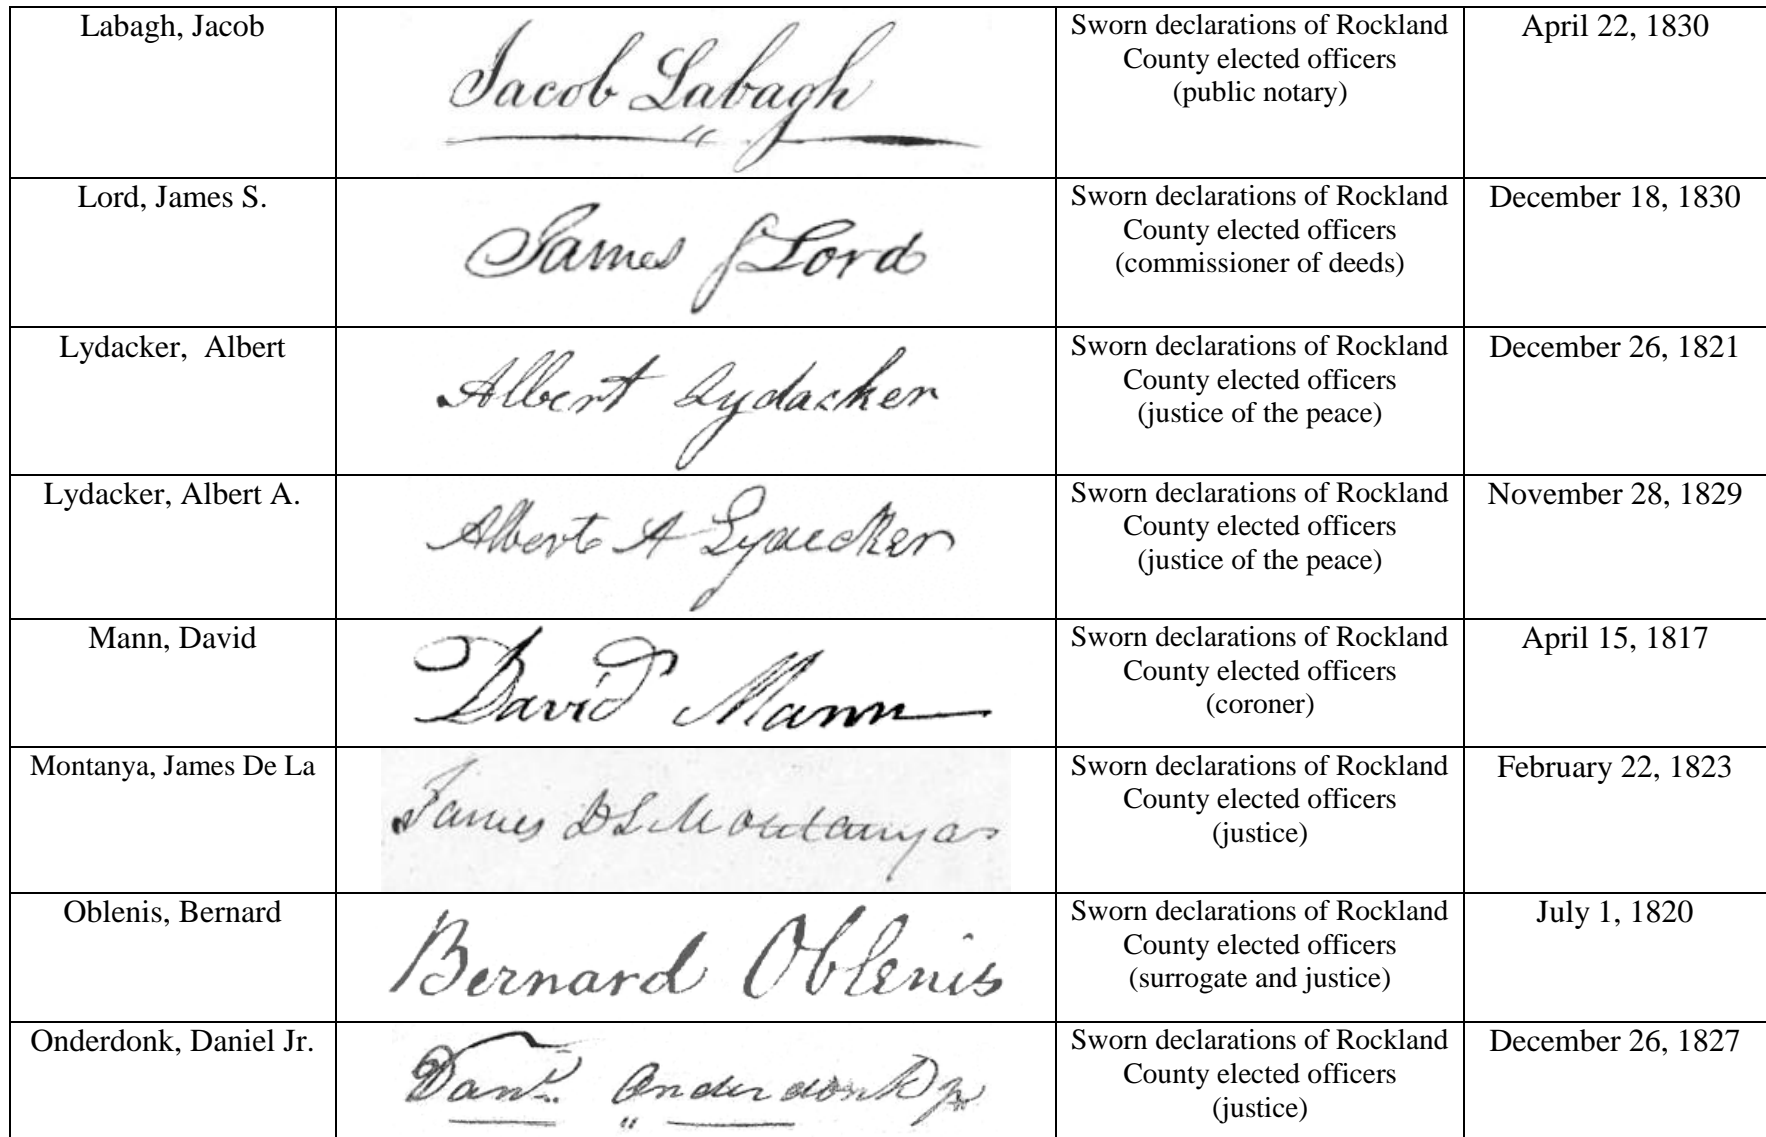 Labagh, Jacob
Jacob Labagh
Sworn declarations of Rockland
County elected officers
(public notary)
April 22, 1830
Lord, James S.
James S Lord
Sworn declarations of Rockland
County elected officers
(commissioner of deeds)
December 18, 1830
Lydacker, Albert
Albert Lydacker
Sworn declarations of Rockland
County elected officers
(justice of the peace)
December 26, 1821
Lydacker, Albert A.
Albert A Lydecker
Sworn declarations of Rockland
County elected officers
(justice of the peace)
November 28, 1829
Mann, David
David Mann
Sworn declarations of Rockland
County elected officers
(coroner)
April 15, 1817
Montanya, James De La
James D L Montanya
Sworn declarations of Rockland
County elected officers
(justice)
February 22, 1823
Oblenis, Bernard
Bernard Oblenis
Sworn declarations of Rockland
County elected officers
(surrogate and justice)
July 1, 1820
Onderdonk, Daniel Jr.
Danl. Onderdonk Jr
Sworn declarations of Rockland
County elected officers
(justice)
December 26, 1827